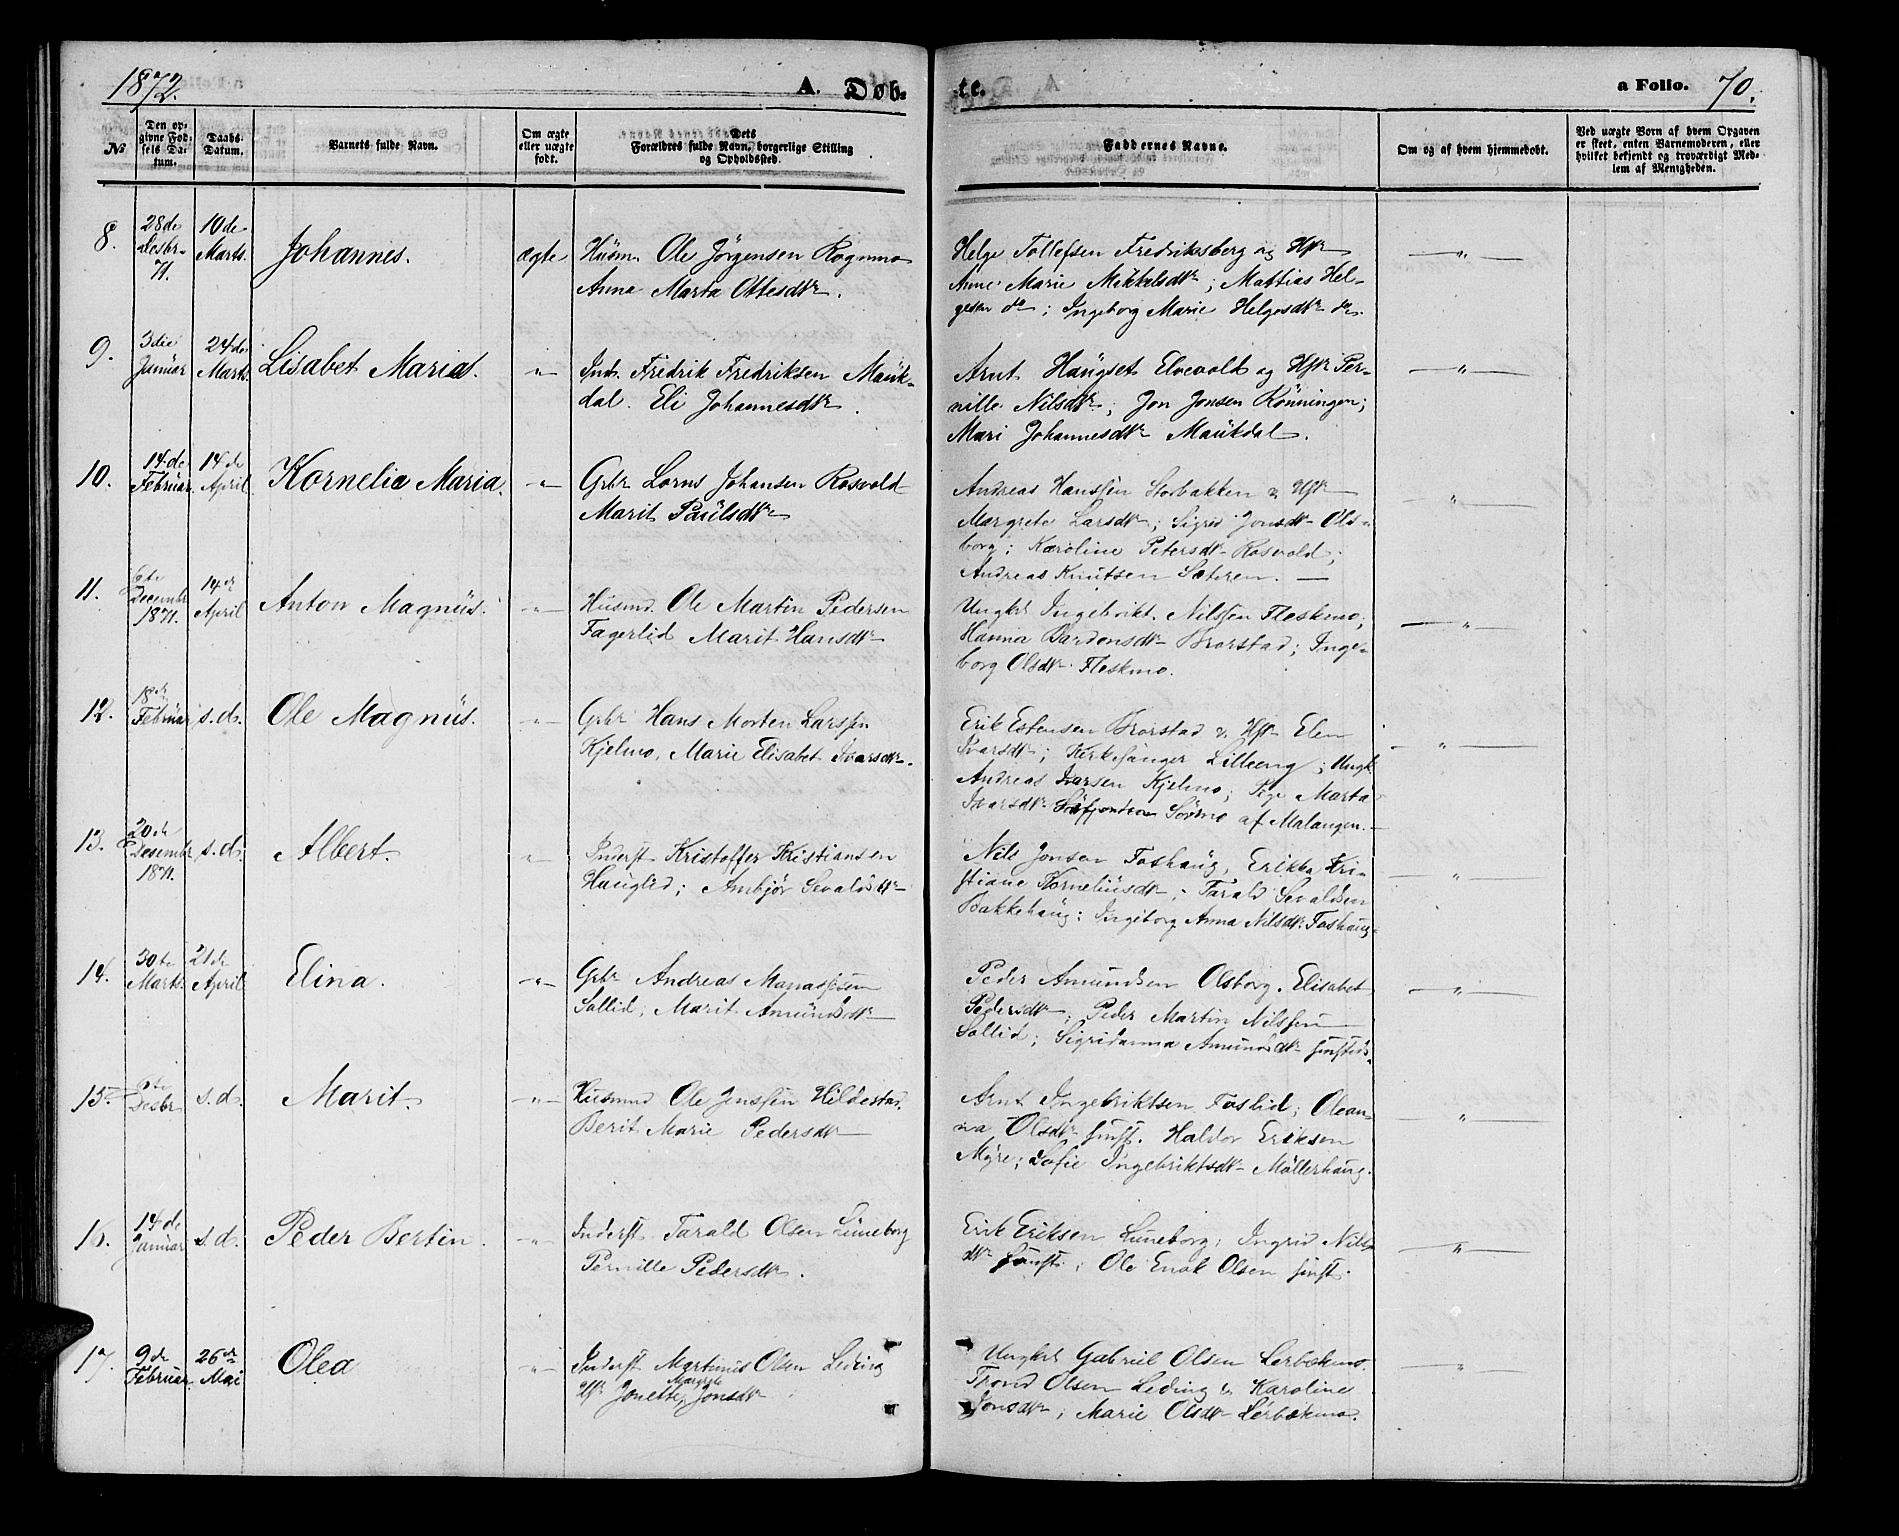 1872.
A. Døb-
te.
a Folio. 70.
№
Den op-
givne Fød-
sels Da-
tum.
Daabs-
Datum.
Barnets fulde Navn.
Om ægte
eller uægte
født.
Dets
Forældres fulde Navn, borgerlige Stilling
og Opholdssted.
Faddernes Navne.
Om og af hvem hjemmedøbt.
Ved uægte Børn af hvem Opgaven
er skeet, enten Barnemoderen, eller
hvilket bekjendt og troværdigt Med-
lem af Menigheden.
8.
28de
Desbr
71.
10de
Marts.
Johannes.
ægte
Husm. Ole Jørgensen Rognmo
Anna Marta Ottesdtr.
Helge Tollefsen Fredriksberg og Hstr
Anne Marie Mikkelsdtr; Mattias Hel-
gesen do; Ingeborg Marie Helgesdtr do.
"
9.
3die
Januar
24de
Marts.
Lisabet Maria.
"
Inds. Fredrik Fredriksen Mauk-
dal. Eli Johannesdtr.
Arnt Haugset Elvevold og Hstr Per-
nille Nilsdtr; Jon Jonsen Rønningen;
Mari Johannesdtr Maukdal.
"
10.
14de
Februar
14de
April
Kornelia Maria.
"
Gbr Lorns Johansen Rosvold
Marit Paulsdtr
Andreas Hanssen Storbakken & Hstr
Margrete Larsdtr; Sigrid Jonsdtr Ols-
borg; Karoline Petersdtr Rosvold;
Andreas Knutsen Sæteren.
"
11.
6te
Decembr
1871.
14de
April
Anton Magnus.
"
Husmd. Ole Martin Pedersen
Fagerlid Marit Hansdtr
Ungkrl Ingebrikt Nilssen Fleskmo;
Hanna Bardonsdtr Brorstad; Inge-
borg Olsdtr Fleskmo.
"
12.
18de
Februar
s. d.
Ole Magnus.
"
Gbr Hans Morten Larssen
Kjelmo, Marie Elisabet Ivarsdtr.
Erik Estensen Brorstad & Hstr Elen
Ivarsdtr; Kirkesanger Lilleeng; Ungk
Andreas Larsen Kjelmo; Pige Marta
Ivarsdtr Sørmo af Malangen.
"
13.
20de
Desembr
1871.
s. d.
Albert.
"
Inderst Kristoffer Kristiansen
Hauglid; Anbjør Sevaldsdtr
Nils Jonsen Foshaug, Erikka Kri-
stiane Korneliusdtr; Tarald Sevaldsen
Bakkehaug; Ingeborg Anna Nilsdtr Foshaug
"
14.
30te
Marts.
21de
April
Elina.
"
Gbr Andreas Manassesen
Sollid; Marit Amundsdtr
Peder Amundsen Olsborg. Elisabet
Pedersdtr; Peder Martin Nilssen
Sollid; Sigridanna Amundsdtr
"
15.
6te
Desbr
s. d.
Marit.
"
Husmnd Ole Jenssen Hildestad.
Berit Marie Pedersdtr
Arnt Ingebriktsen Foslid; Olean-
na Olsdtr smst. Haldor Eriksen
Myre; Sofie Ingebriktsdtr Møllerhaug.
"
16.
14de
Januar
s. d.
Peder Bertin.
"
Inderst Tarald Olsen Luneborg
Pernille Pedersdtr.
Erik Eriksen Luneborg; Ingrid Nils-
dtr smst; Ole Enok Olsen smst.
"
17.
9de
Februar
26de
Mai
Olea
"
Inderst Martinus Olsen Leding
H. Jonette Margrete Jonsdtr
Ungkrl Gabriel Olsen Lerbekmo.
Trond Olsen Leding & Karoline
Jonsdtr; Marie Olsdtr Lerbekmo.
"